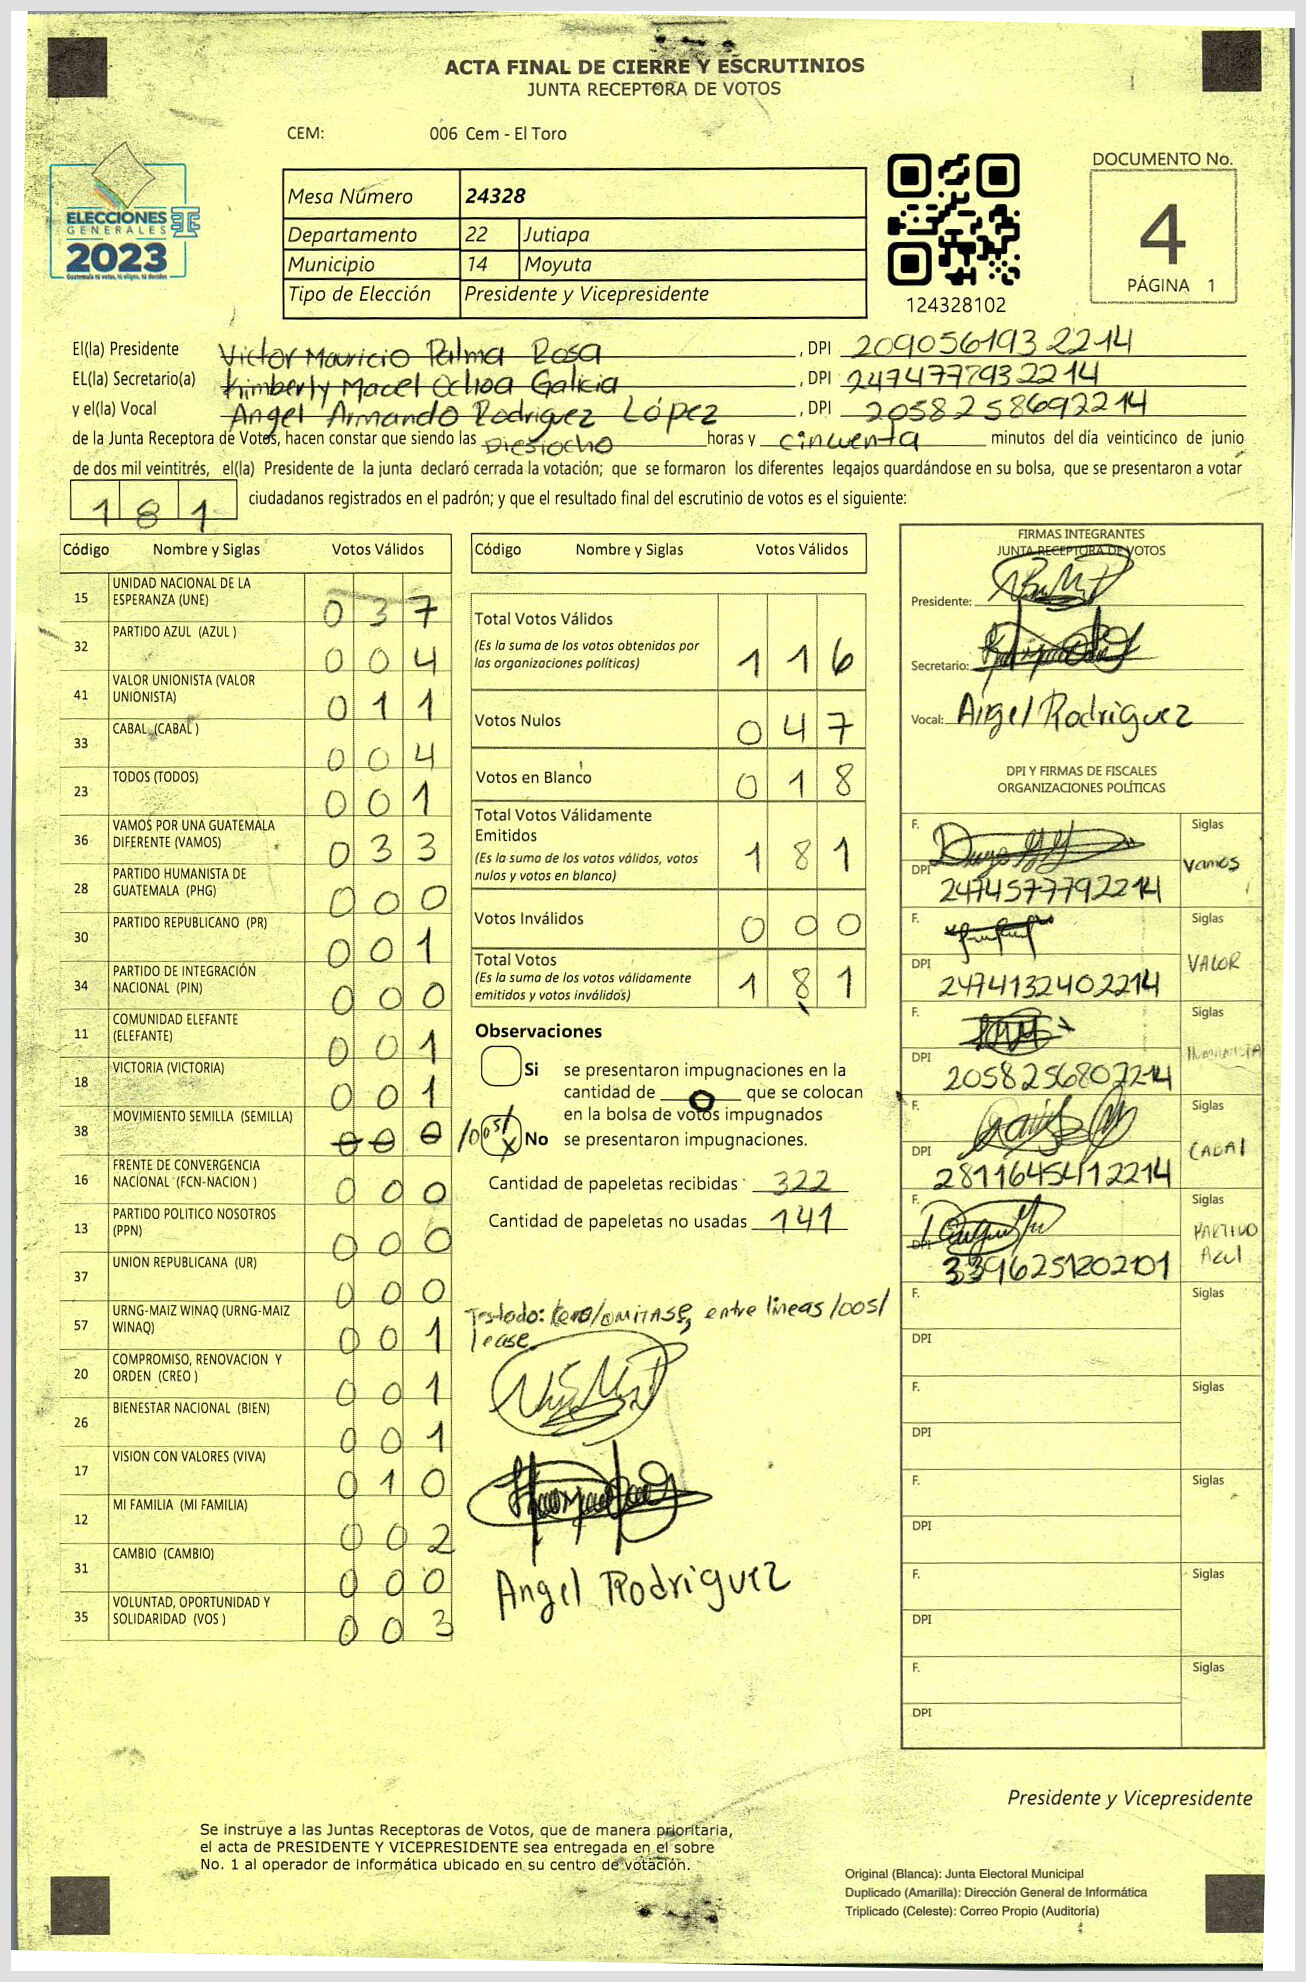 ACTA FINAL DE CIERRE Y ESCRUTINIOS
JUNTA RECEPTORA DE VOTOS
CEM: 006 Cem - El Toro
ELECCIONES
GENERALES
2023
Guatemala tú votas, tú eliges, tú decides
Mesa Número 24328
Departamento 22 Jutiapa
Municipio 14 Moyuta
Tipo de Elección Presidente y Vicepresidente
124328102
DOCUMENTO No.
4
PÁGINA 1
El(la) Presidente Victor Mauricio Palma Rosa, DPI 2090561932214
EL(la) Secretario(a) Kimberly Macel Ochoa Galicia, DPI 2474777932214
y el(la) Vocal Angel Armando Rodriguez López, DPI 2058258692214
de la Junta Receptora de Votos, hacen constar que siendo las Diesiocho horas y cincuenta minutos del día veinticinco de junio
de dos mil veintitrés, el(la) Presidente de la junta declaró cerrada la votación; que se formaron los diferentes legajos guardándose en su bolsa, que se presentaron a votar
181 ciudadanos registrados en el padrón; y que el resultado final del escrutinio de votos es el siguiente:
Código Nombre y Siglas Votos Válidos
15 UNIDAD NACIONAL DE LA ESPERANZA (UNE) 037
32 PARTIDO AZUL (AZUL ) 004
41 VALOR UNIONISTA (VALOR UNIONISTA) 011
33 CABAL (CABAL ) 004
23 TODOS (TODOS) 001
36 VAMOS POR UNA GUATEMALA DIFERENTE (VAMOS) 033
28 PARTIDO HUMANISTA DE GUATEMALA (PHG) 000
30 PARTIDO REPUBLICANO (PR) 001
34 PARTIDO DE INTEGRACIÓN NACIONAL (PIN) 000
11 COMUNIDAD ELEFANTE (ELEFANTE) 001
18 VICTORIA (VICTORIA) 001
38 MOVIMIENTO SEMILLA (SEMILLA) 000 /005/
16 FRENTE DE CONVERGENCIA NACIONAL (FCN-NACION ) 000
13 PARTIDO POLITICO NOSOTROS (PPN) 000
37 UNION REPUBLICANA (UR) 000
57 URNG-MAIZ WINAQ (URNG-MAIZ WINAQ) 001
20 COMPROMISO, RENOVACION Y ORDEN (CREO ) 001
26 BIENESTAR NACIONAL (BIEN) 001
17 VISION CON VALORES (VIVA) 010
12 MI FAMILIA (MI FAMILIA) 002
31 CAMBIO (CAMBIO) 000
35 VOLUNTAD, OPORTUNIDAD Y SOLIDARIDAD (VOS ) 003
Código Nombre y Siglas Votos Válidos
Total Votos Válidos 116
(Es la suma de los votos obtenidos por
las organizaciones políticas)
Votos Nulos 047
Votos en Blanco 018
Total Votos Válidamente
Emitidos 181
(Es la suma de los votos válidos, votos
nulos y votos en blanco)
Votos Inválidos 000
Total Votos 181
(Es la suma de los votos válidamente
emitidos y votos inválidos)
Observaciones
Si se presentaron impugnaciones en la
cantidad de 0 que se colocan
en la bolsa de votos impugnados
X No se presentaron impugnaciones.
Cantidad de papeletas recibidas 322
Cantidad de papeletas no usadas 141
Testado: cero/OMITASE, entre lineas /005/
lease
Angel Rodriguez
FIRMAS INTEGRANTES
JUNTA RECEPTORA DE VOTOS
Presidente:
Secretario:
Vocal: Angel Rodriguez
DPI Y FIRMAS DE FISCALES
ORGANIZACIONES POLÍTICAS
F. Siglas
DPI 2474577792214 Vamos
F. Siglas
DPI 2474132402214 VALOR
F. Siglas
DPI 2058256802214 HUMANISTA
F. Siglas
DPI 2811645412214 CABAL
F. Siglas
DPI 3396251202101 PARTIDO AZUL
F. Siglas
DPI
F. Siglas
DPI
F. Siglas
DPI
F. Siglas
DPI
F. Siglas
DPI
Presidente y Vicepresidente
Se instruye a las Juntas Receptoras de Votos, que de manera prioritaria,
el acta de PRESIDENTE Y VICEPRESIDENTE sea entregada en el sobre
No. 1 al operador de informática ubicado en su centro de votación.
Original (Blanca): Junta Electoral Municipal
Duplicado (Amarilla): Dirección General de Informática
Triplicado (Celeste): Correo Propio (Auditoría)